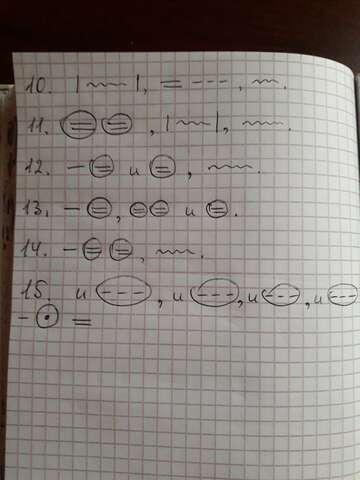 10. |~~~|, = - - -, ~~~.
11. (=) (=), |~~~|, ~~~.
12. – (=) и (=), ~~~.
13. – (=), (=) (=) и (=).
14. – (=) (=), ~~~.
15. и (- - -), и (- - -), и (- - -), и (- - -)
– (•) =